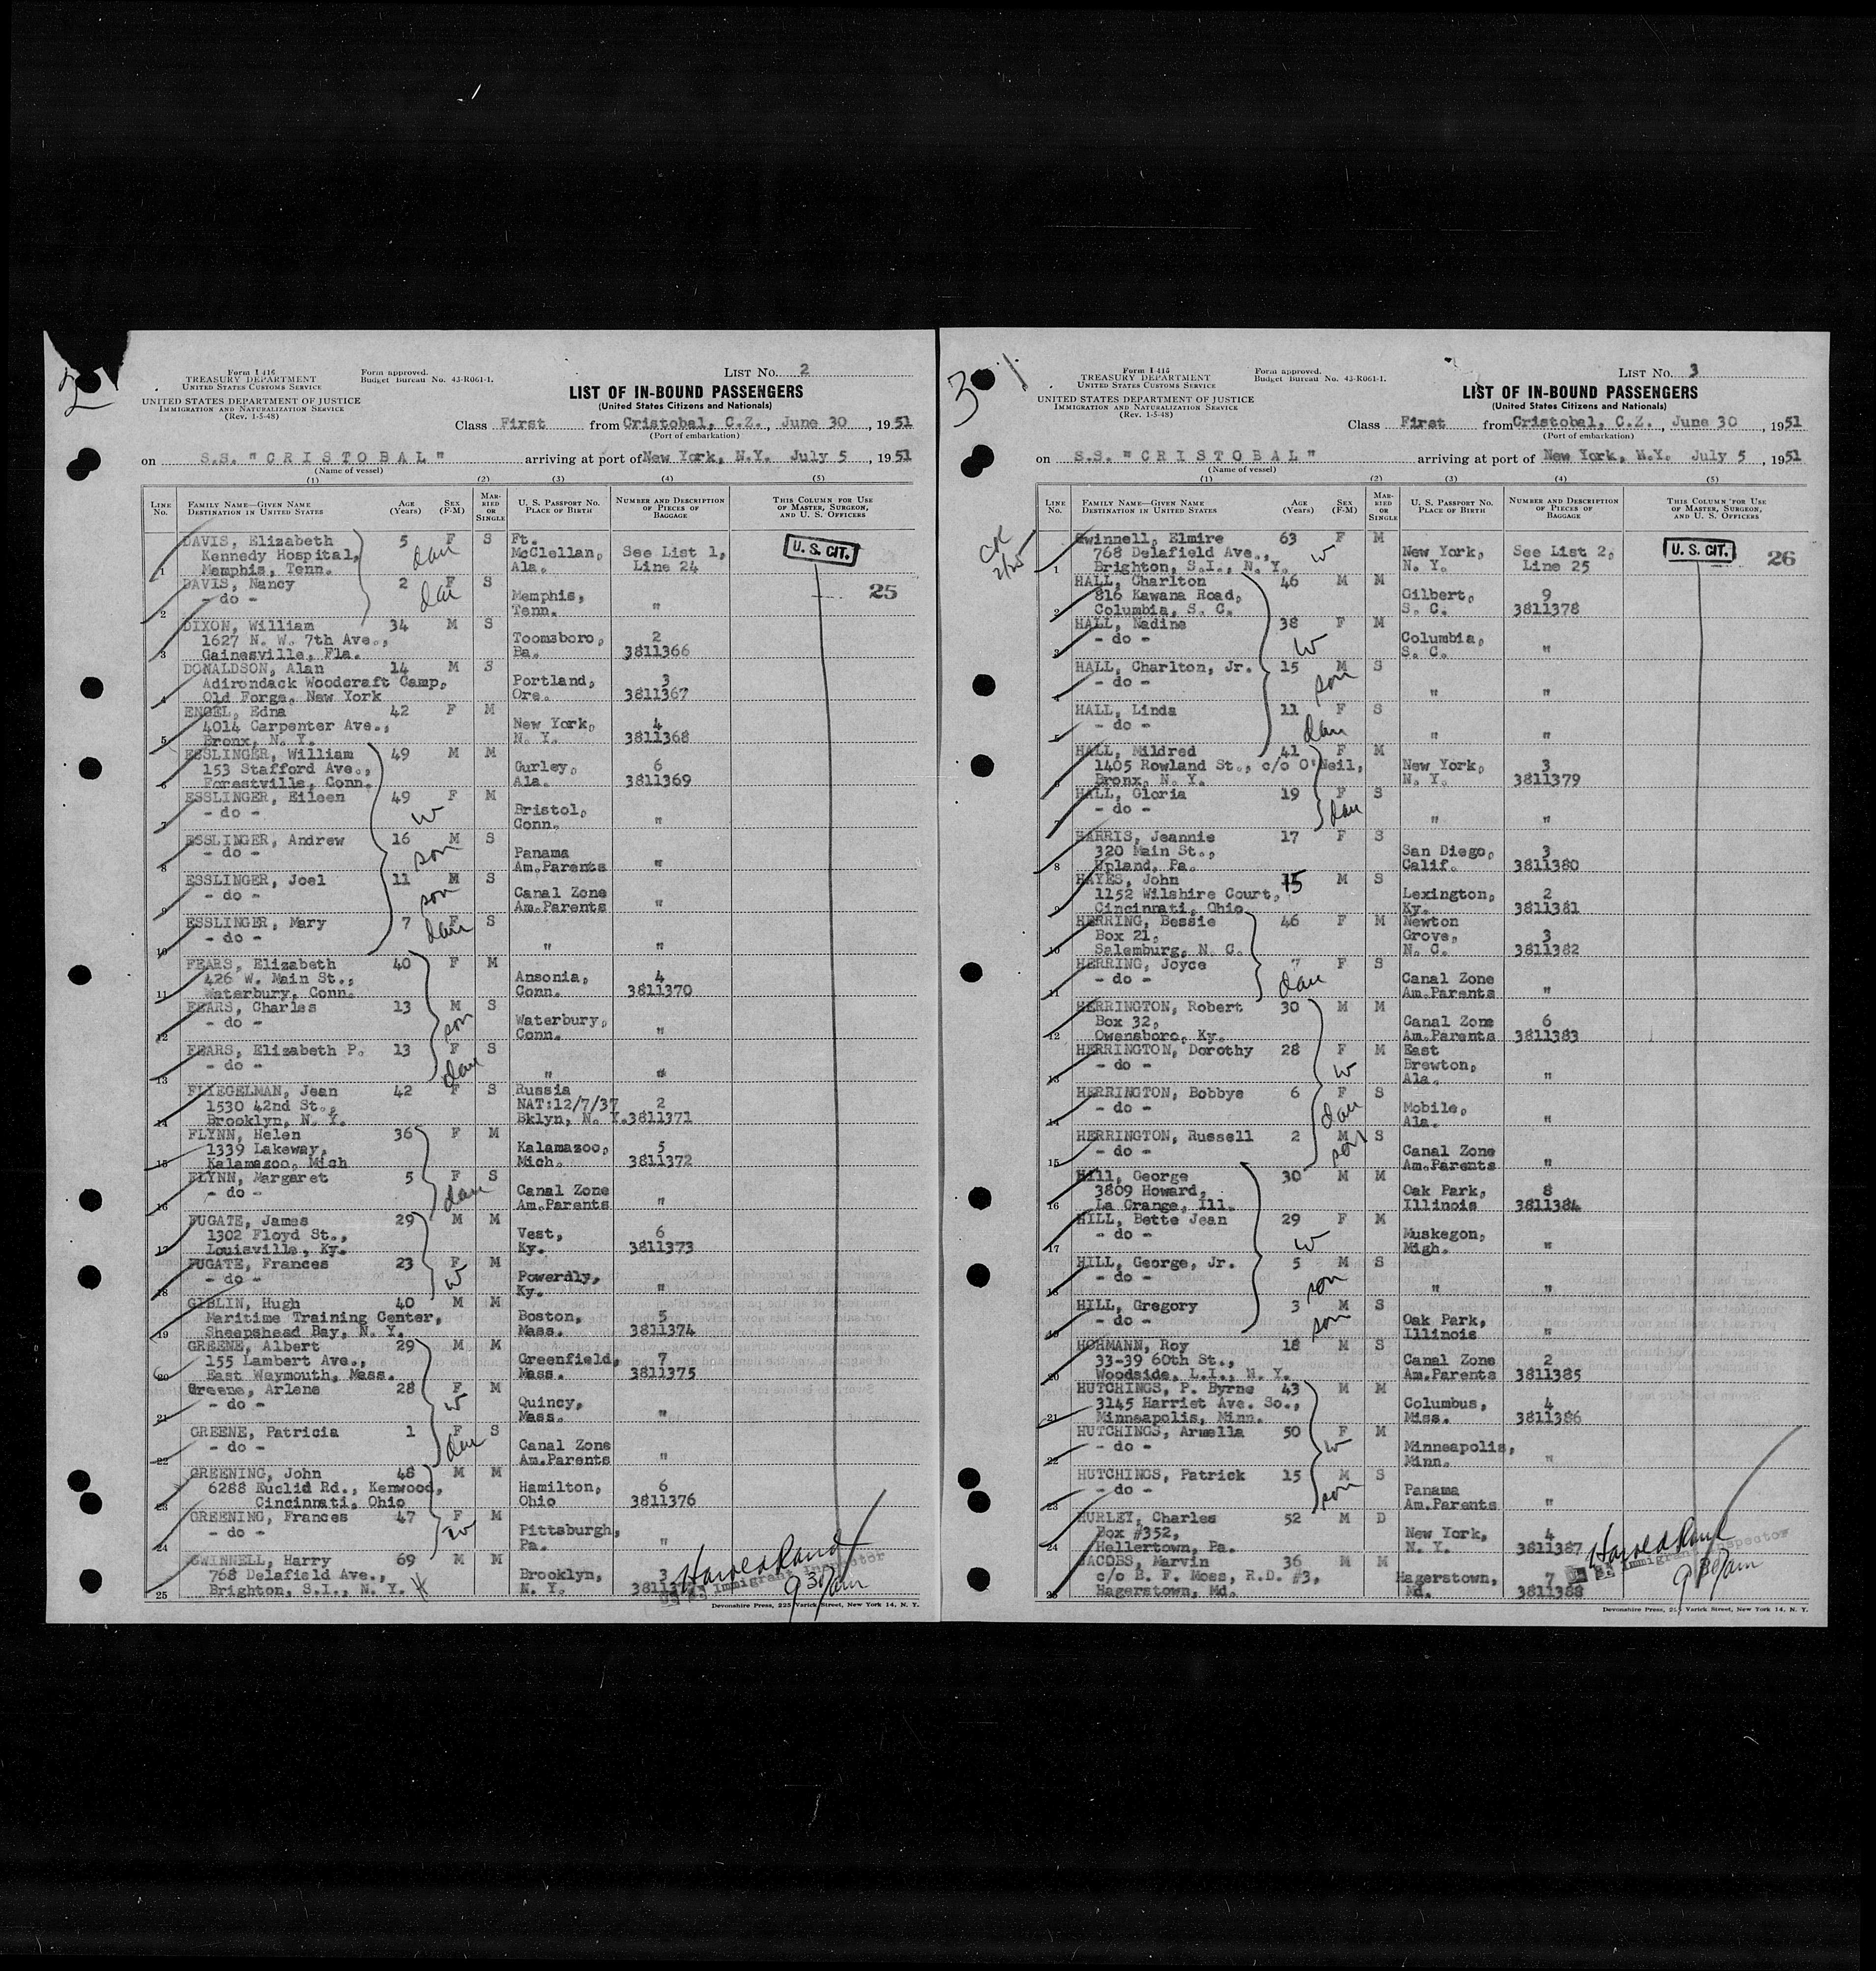 2
Form I 416
TREASURY DEPARTMENT
UNITED STATES CUSTOMS SERVICE
Form approved.
Budget Bureau No. 43-R061-1.
LIST NO. 2
UNITED STATES DEPARTMENT OF JUSTICE
IMMIGRATION AND NATURALIZATION SERVICE
(Rev. 1-5-48)
LIST OF IN-BOUND PASSENGERS
(United States Citizens and Nationals)
Class First from Cristobal, C.Z., June 30, 1951
(Port of embarkation)
on S.S. "CRISTOBAL" arriving at port of New York, N.Y. July 5, 1951
(Name of vessel)
(1) (2) (3) (4) (5)
LINE NO. FAMILY NAME—GIVEN NAME DESTINATION IN UNITED STATES AGE (Years) SEX (F-M) MARRIED OR SINGLE U. S. PASSPORT NO. PLACE OF BIRTH NUMBER AND DESCRIPTION OF PIECES OF BAGGAGE THIS COLUMN FOR USE OF MASTER, SURGEON, AND U. S. OFFICERS
DAVIS, Elizabeth 5 F S Ft.
Kennedy Hospital, dau McClellan, See List 1, U. S. CIT.
1 Memphis, Tenn. Ala. Line 24
DAVIS, Nancy 2 F S 25
- do - dau Memphis,
2 Tenn. "
DIXON, William 34 M S
1627 N. W. 7th Ave., Toomsboro, 2
3 Gainesville, Fla. Ba. 3811366
DONALDSON, Alan 14 M S
Adirondack Woodcraft Camp, Portland, 3
4 Old Forge, New York Ore. 3811367
ENGEL, Edna 42 F M
4014 Carpenter Ave., New York, 4
5 Bronx, N. Y. N. Y. 3811368
ESSLINGER, William 49 M M
153 Stafford Ave., Gurley, 6
6 Forestville, Conn. Ala. 3811369
ESSLINGER, Eileen 49 F M
- do - w Bristol,
7 Conn. "
ESSLINGER, Andrew 16 M S
- do - son Panama
8 Am.Parents "
ESSLINGER, Joel 11 M S
- do - son Canal Zone
9 Am.Parents "
ESSLINGER, Mary 7 F S
- do - dau
10 " "
FEARS, Elizabeth 40 F M
426 W. Main St., Ansonia, 4
11 Waterbury, Conn. Conn. 3811370
FEARS, Charles 13 M S
- do - son Waterbury,
12 Conn. "
FEARS, Elizabeth P. 13 F S
- do - dau
13 " "
FLIEGELMAN, Jean 42 F S Russia
1530 42nd St., NAT:12/7/37 2
14 Brooklyn, N. Y. Bklyn, N. Y. 3811371
FLYNN, Helen 36 F M
1339 Lakeway, Kalamazoo, 5
15 Kalamazoo, Mich Mich. 3811372
FLYNN, Margaret 5 F S
- do - dau Canal Zone
16 Am.Parents "
FUGATE, James 29 M M
1302 Floyd St., Vest, 6
17 Louisville, Ky. Ky. 3811373
FUGATE, Frances 23 F M
- do - w Powerdly,
18 Ky. "
GIBLIN, Hugh 40 M M
Maritime Training Center, Boston, 5
19 Sheepshead Bay, N. Y. Mass. 3811374
GREENE, Albert 29 M M
155 Lambert Ave., Greenfield, 7
20 East Weymouth, Mass. Mass. 3811375
Greene, Arlene 28 F M
- do - w Quincy,
21 Mass. "
GREENE, Patricia 1 F S
- do - dau Canal Zone
22 Am.Parents "
GREENING, John 48 M M
6288 Euclid Rd., Kenwood, Hamilton, 6
23 Cincinnati, Ohio Ohio 3811376
GREENING, Frances 47 F M
- do - w Pittsburgh,
24 Pa. "
GWINNELL, Harry 69 M M
768 Delafield Ave., Brooklyn, 3
25 Brighton, S.I., N. Y. H N. Y.
Immigrant Inspector
9 30 am
Devonshire Press, 225 Varick Street, New York 14, N. Y.
3
Form I 415
TREASURY DEPARTMENT
UNITED STATES CUSTOMS SERVICE
Form approved.
Budget Bureau No. 43-R061-1.
LIST NO. 3
UNITED STATES DEPARTMENT OF JUSTICE
IMMIGRATION AND NATURALIZATION SERVICE
(Rev. 1-5-48)
LIST OF IN-BOUND PASSENGERS
(United States Citizens and Nationals)
Class First from Cristobal, C.Z., June 30, 1951
(Port of embarkation)
on S.S. "CRISTOBAL" arriving at port of New York, N.Y. July 5, 1951
(Name of vessel)
(1) (2) (3) (4) (5)
LINE NO. FAMILY NAME—GIVEN NAME DESTINATION IN UNITED STATES AGE (Years) SEX (F-M) MARRIED OR SINGLE U. S. PASSPORT NO. PLACE OF BIRTH NUMBER AND DESCRIPTION OF PIECES OF BAGGAGE THIS COLUMN FOR USE OF MASTER, SURGEON, AND U. S. OFFICERS
2/25
Gwinnell, Elmire 63 F M
768 Delafield Ave., w New York, See List 2, U. S. CIT. 26
1 Brighton, S.I., N. Y. N. Y. Line 25
HALL, Charlton 46 M M
816 Kawana Road, Gilbert, 9
2 Columbia, S. C. S. C. 3811378
HALL, Nadine 38 F M
- do - w Columbia,
3 S. C. "
HALL, Charlton, Jr. 15 M S
- do - son
4 " "
HALL, Linda 11 F S
- do - dau
5 " "
HALL, Mildred 41 F M
1405 Rowland St., c/o O'Neil, New York, 3
6 Bronx, N. Y. N. Y. 3811379
HALL, Gloria 19 F S
- do - dau
7 " "
HARRIS, Jeannie 17 F S
320 Main St., San Diego, 3
8 Upland, Pa. Calif. 3811380
HAYES, John 15 M S
1152 Wilshire Court, Lexington, 2
9 Cincinnati, Ohio Ky. 3811381
HERRING, Bessie 46 F M Newton
Box 21, Grove, 3
10 Salemburg, N. C. N. C. 3811382
HERRING, Joyce 7 F S
- do - dau Canal Zone
11 Am.Parents "
HERRINGTON, Robert 30 M M
Box 32, Canal Zone 6
12 Owensboro, Ky. Am.Parents 3811383
HERRINGTON, Dorothy 28 F M East
- do - w Brewton,
13 Ala. "
HERRINGTON, Bobbye 6 F S
- do - dau Mobile,
14 Ala. "
HERRINGTON, Russell 2 M S
- do - son Canal Zone
15 Am.Parents "
Hill, George 30 M M
3809 Howard, Oak Park, 8
16 La Grange, Ill. Illinois 3811384
HILL, Bette Jean 29 F M
- do - w Muskegon,
17 Migh. "
HILL, George, Jr. 5 M S
- do - son
18 " "
HILL, Gregory 3 M S
- do - son Oak Park,
19 Illinois "
HORMANN, Roy 18 M S
33-39 60th St., Canal Zone 2
20 Woodside, L.I., N. Y. Am.Parents 3811385
HUTCHINGS, P. Byrne 43 M M
3145 Harriet Ave. So., Columbus, 4
21 Minneapolis, Minn. Miss. 3811386
HUTCHINGS, Armella 50 F M
- do - w Minneapolis,
22 Minn. "
HUTCHINGS, Patrick 15 M S
- do - son Panama
23 Am.Parents "
HURLEY, Charles 52 M D
Box #352, New York, 4
24 Hellertown, Pa. N. Y. 3811387
JACOBS, Marvin 36 M M
c/o B. F. Moss, R.D. #3, Hagerstown, 7
25 Hagerstown, Md. Md. 3811388
Immigrant Inspector
9 30 am
Devonshire Press, 225 Varick Street, New York 14, N. Y.